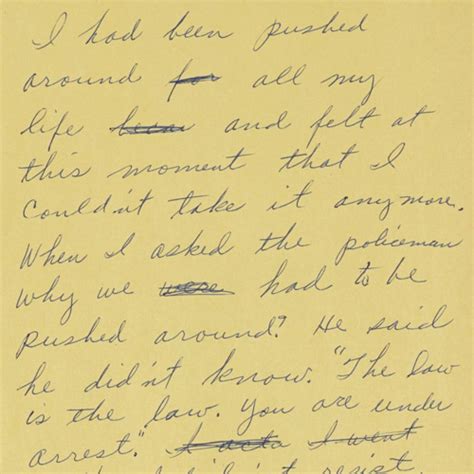 I had been pushed
around for all my
life becau and felt at
this moment that I
couldn't take it anymore.
When I asked the policeman
why we were had to be
pushed around? He said
he didn't know. "The law
is the law. You are under
arrest." I went
didn't resist.